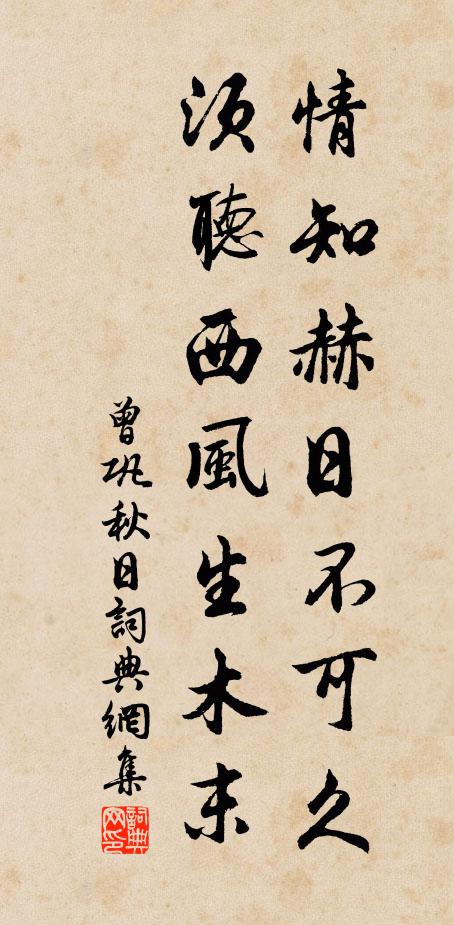 情知赫日不可久
須聽西風生木末
曾巩秋日詞典網集
詞典网印